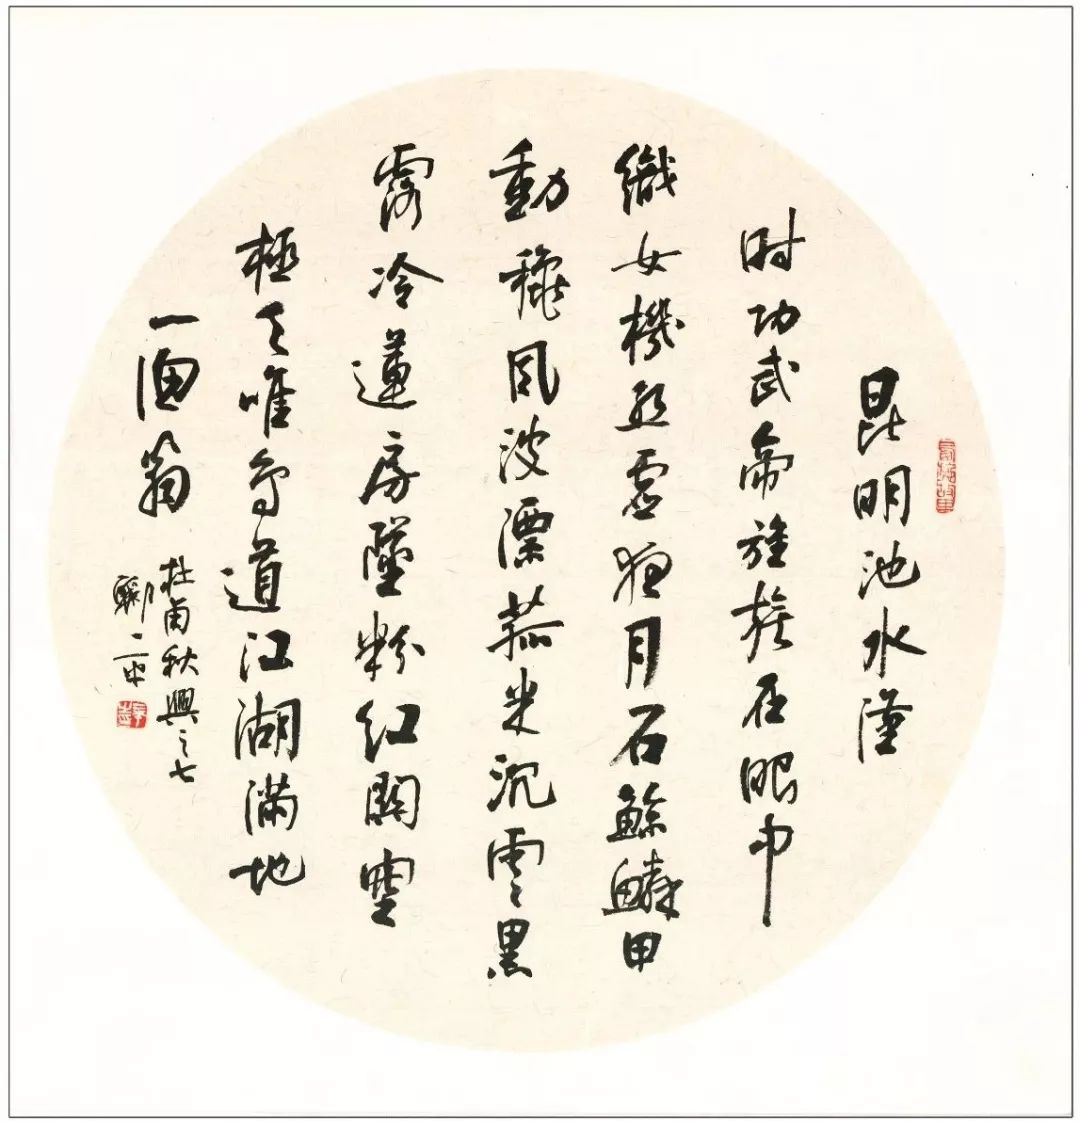 昆明池水漢
时功武帝旌旗在眼中
織女機丝虚夜月石鯨鱗甲
動穐風波漂菰米沉雲黑
露冷蓮房墜粉红關塞
極天唯鳥道江湖滿地
一漁翁
杜甫秋興之七